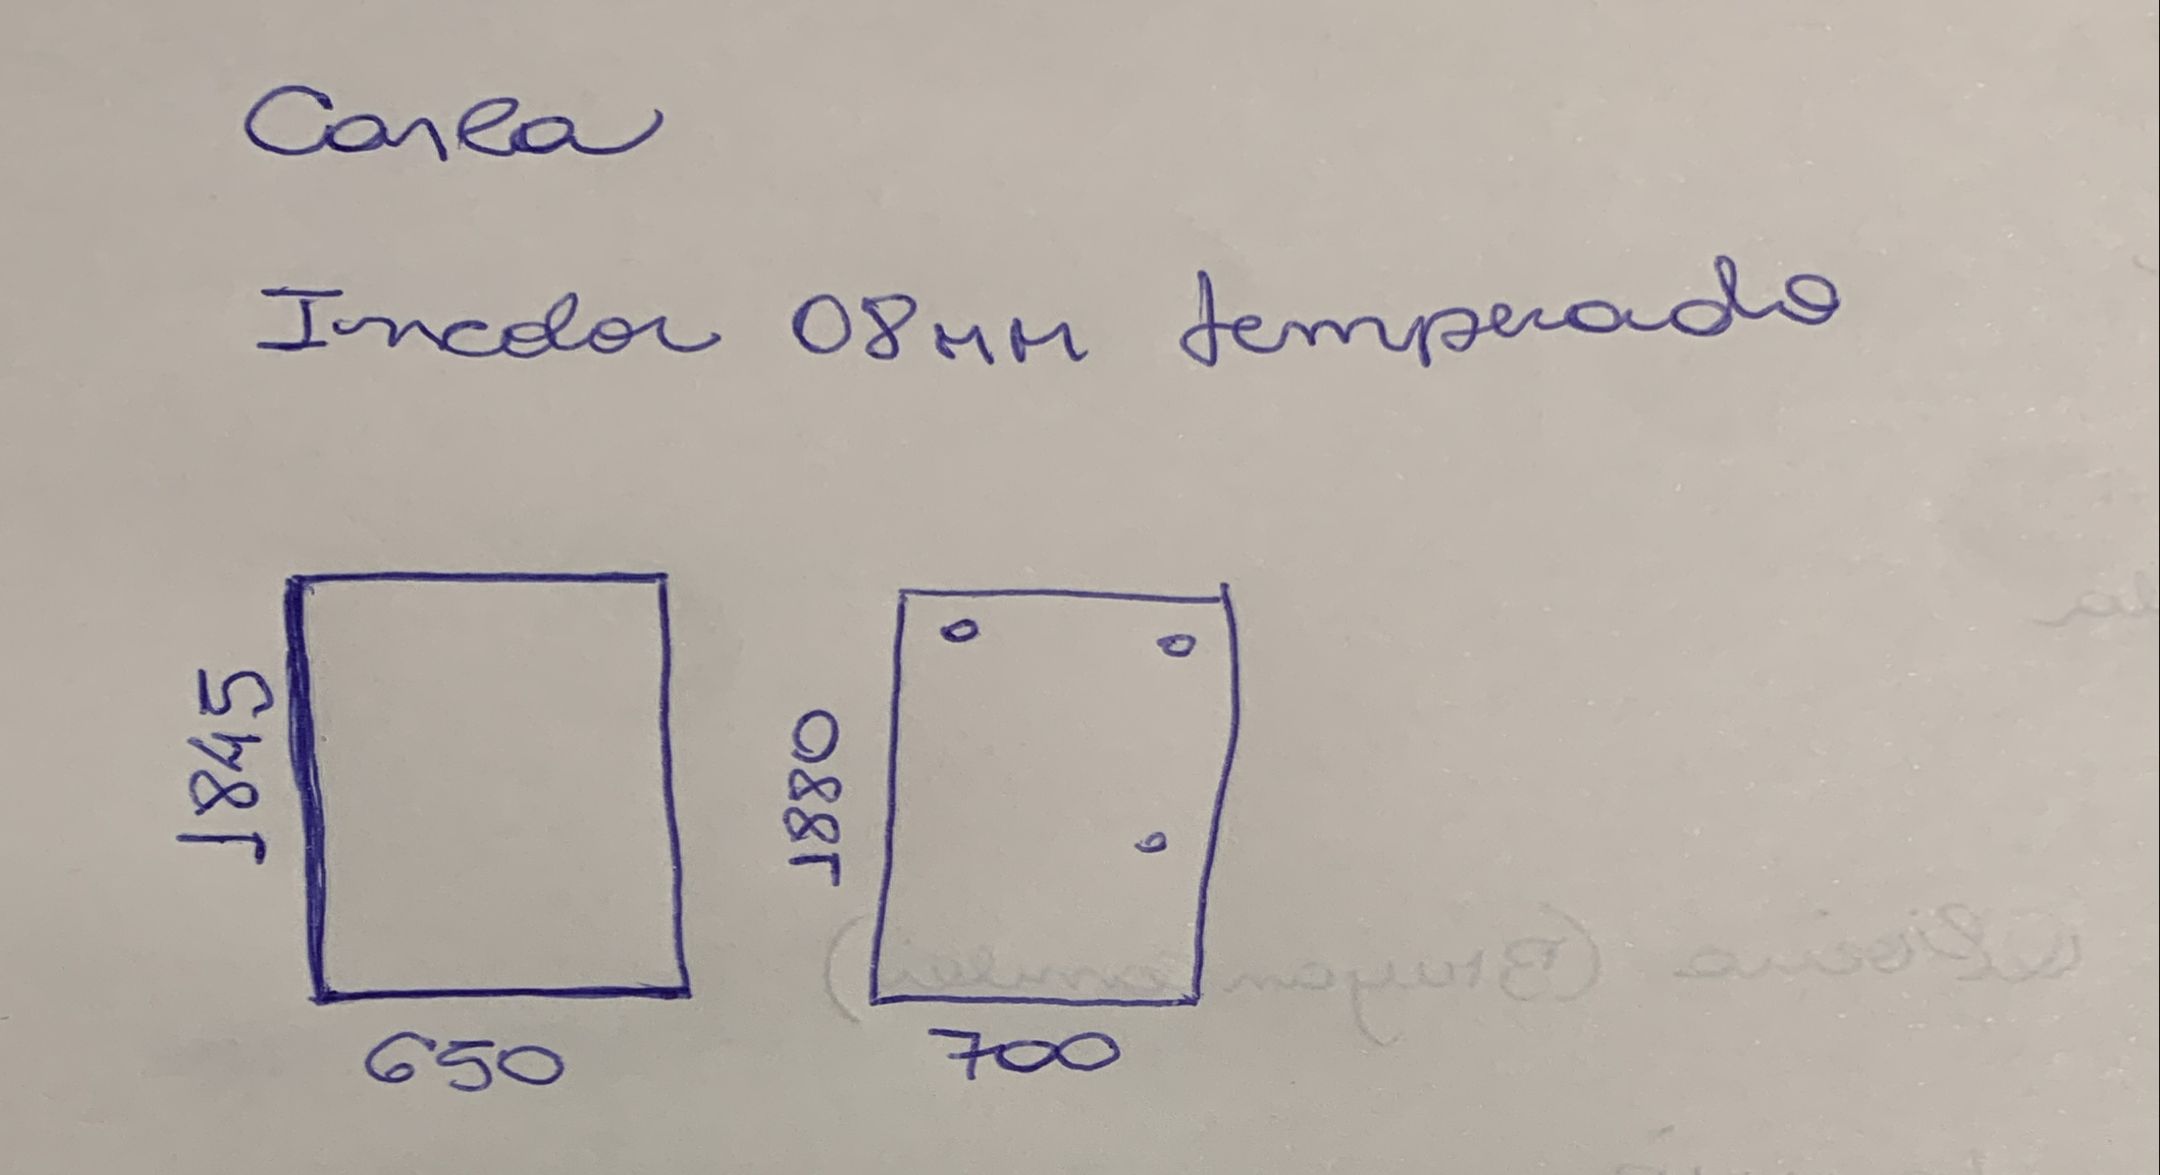 Carla
Incolor 08mm temperado
1845
1880
650
700